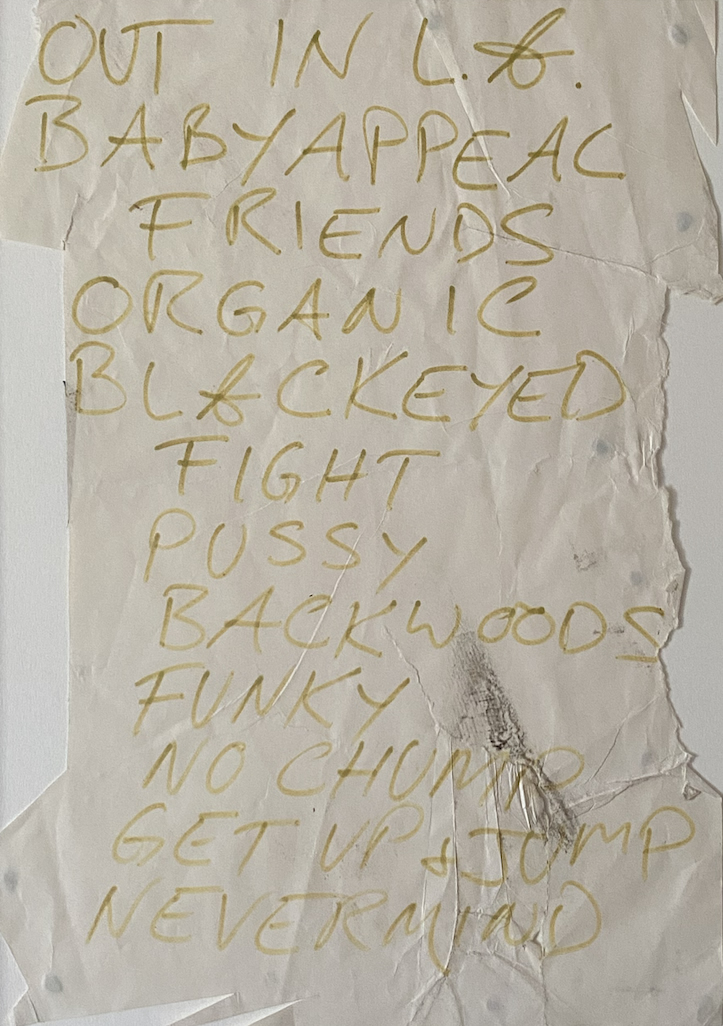 OUT IN L.A.
BABYAPPEAL
FRIENDS
ORGANIC
BLACKEYED
FIGHT
PUSSY
BACKWOODS
FUNKY
NO CHUMP
GET UP & JUMP
NEVERMIND